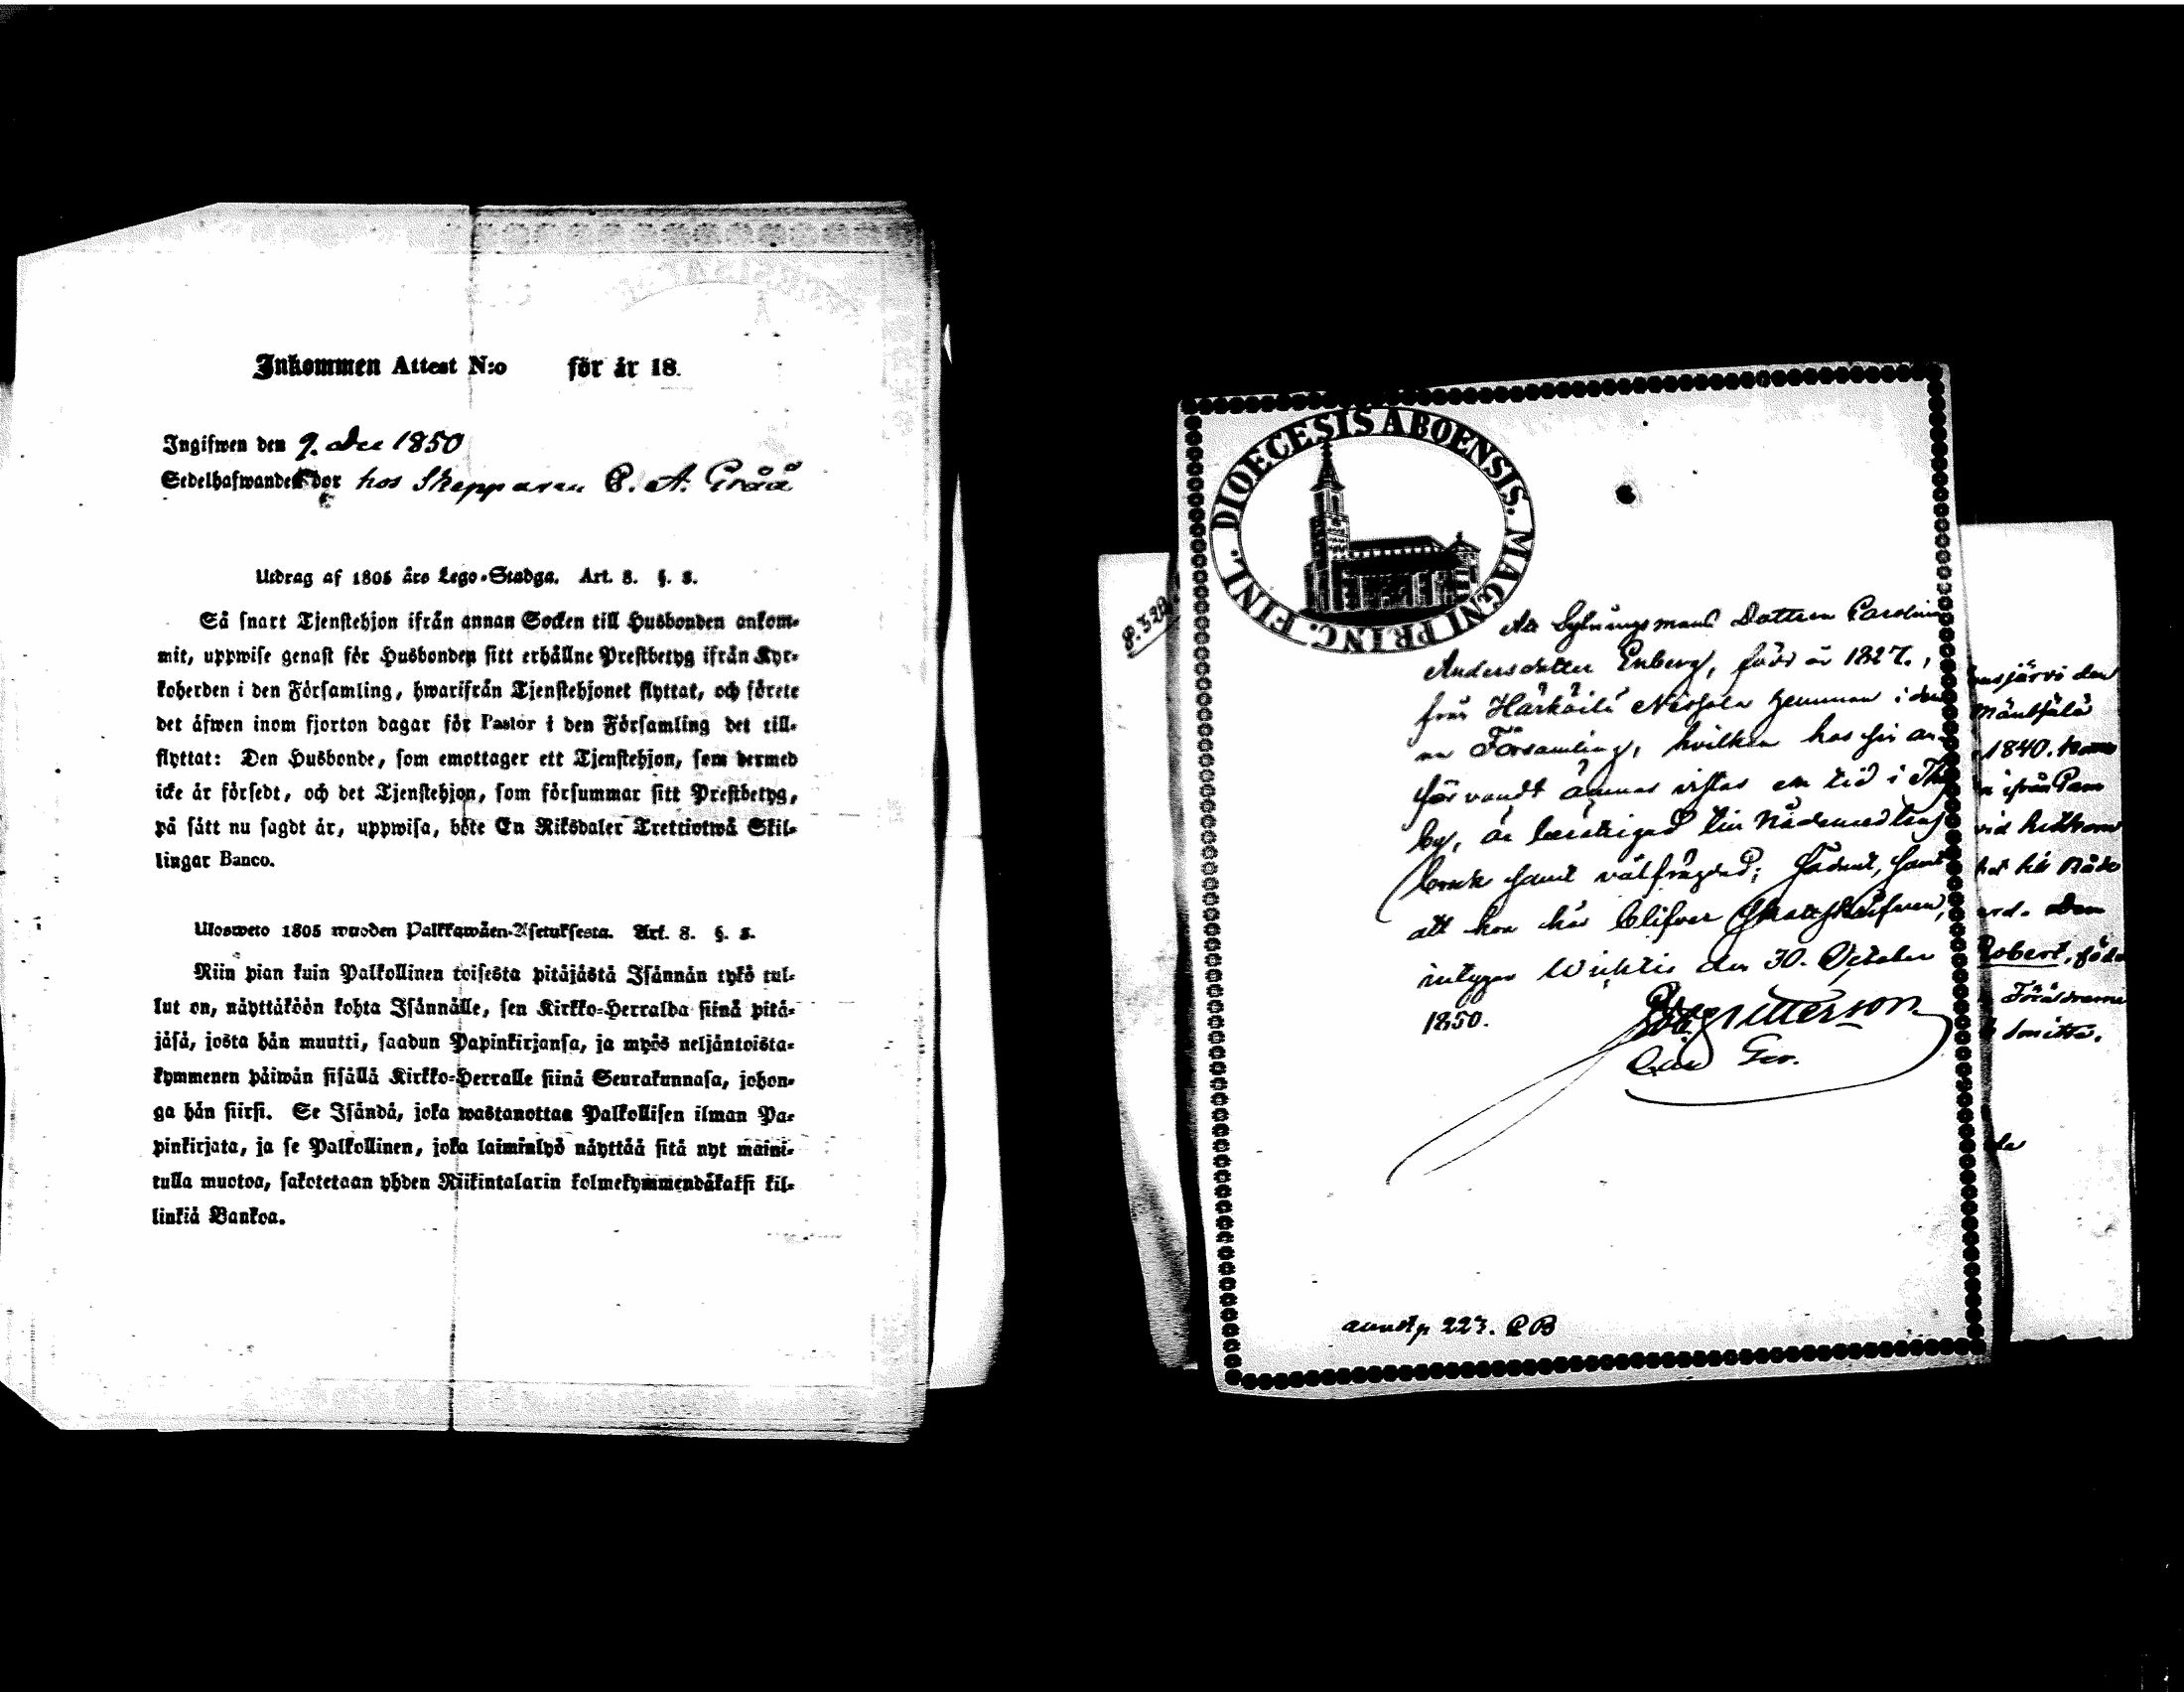 Inkommen Attest N:o för år 18.
Ingifwen den 9. Dec 1850
Sedelhafwanden bor hos Skepparen C. A. Gråå
Utdrag af 1805 års Lego-Stadga. Art. 8. §. 8.
Så snart Tjenstehjon ifrån annan Socken till Husbonden ankom-
mit, uppwise genast för Husbonden sitt erhållne Prestbetyg ifrån Kyr-
koherden i den Församling, hwarifrån Tjenstehjonet flyttat, och förete
det äfwen inom fjorton dagar för Pastor i den Församling det till-
flyttat: Den Husbonde, som emottager ett Tjenstehjon, som dermed
icke är försedt, och det Tjenstehjon, som försummar sitt Prestbetyg,
på sätt nu sagdt är, uppwisa, böte En Riksdaler Trettiotwå Skil-
lingar Banco.
Ulosweto 1805 wuoden Palkkawäen-Asetuksesta. Art. 8. §. 8.
Niin pian kuin Palkollinen toisesta pitäjästä Isännän tykö tul-
lut on, näyttäköön kohta Isännälle, sen Kirkko-Herralda siinä pitä-
jäsä, josta hän muutti, saadun Papinkirjansa, ja myös neljäntoista-
kymmenen päiwän sisällä Kirkko-Herralle siinä Seurakunnasa, johon-
ga hän siirsi. Se Isändä, joka wastanottaa Palkollisen ilman Pa-
pinkirjata, ja se Palkollinen, joka laiminlyö näyttää sitä nyt maini-
tulla muotoa, sakotetaan yhden Riikintalarin kolmekymmendäkaksi kil-
linkiä Bankoa.
DIOECESIS ABOENSIS. MAGNI PRINC. FINL.
P. 320
Att Dottren
Andersdotter Enberg, född år 1827.,
från Härköilä hemman i den
na Församling, hvilken hos sin an-
förvandt ämnar vistas en tid i
by, är berättigad till Nådemedlens
bruk samt välfrägdad;
att hon här blifver
intygar Wichtis den 30. October
1850.
223.
usjärvi den
Mäntsälä
1840.
ifrån
vid
till
Den
Robert, född
Föräldrarne